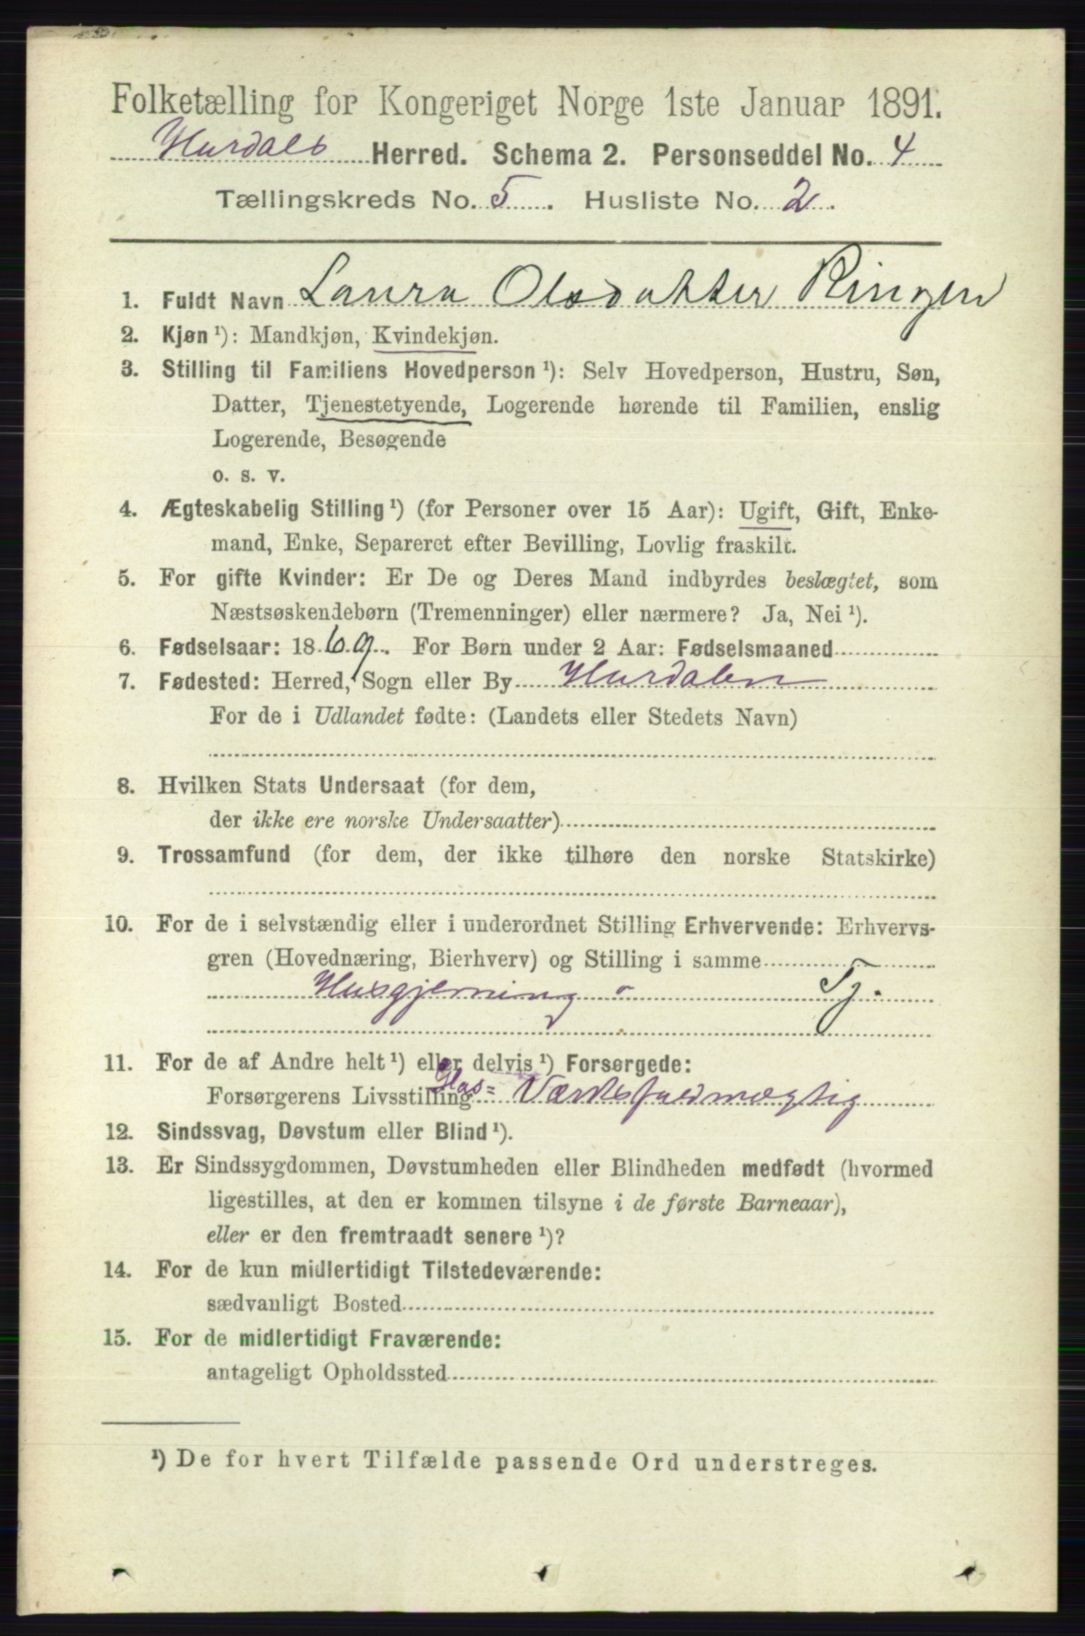 Folketælling for Kongeriget Norge 1ste Januar 1891.
Hurdals Herred. Schema 2. Personseddel No. 4
Tællingskreds No. 5. Husliste No. 2.
1. Fuldt Navn Laura Olsdatter Ringen
2. Kjøn ¹): Mandkjøn, Kvindekjøn.
3. Stilling til Familiens Hovedperson ¹): Selv Hovedperson, Hustru, Søn,
Datter, Tjenestetyende, Logerende hørende til Familien, enslig
Logerende, Besøgende
o. s. v.
4. Ægteskabelig Stilling ¹) (for Personer over 15 Aar): Ugift, Gift, Enke-
mand, Enke, Separeret efter Bevilling, Lovlig fraskilt.
5. For gifte Kvinder: Er De og Deres Mand indbyrdes beslægtet, som
Næstsøskendebørn (Tremenninger) eller nærmere? Ja, Nei ¹).
6. Fødselsaar: 1869. For Børn under 2 Aar: Fødselsmaaned
7. Fødested: Herred, Sogn eller By Hurdalen
For de i Udlandet fødte: (Landets eller Stedets Navn)
8. Hvilken Stats Undersaat (for dem,
der ikke ere norske Undersaatter)
9. Trossamfund (for dem, der ikke tilhøre den norske Statskirke)
10. For de i selvstændig eller i underordnet Stilling Erhvervende: Erhvervs-
gren (Hovednæring, Bierhverv) og Stilling i samme
Husgjerning - Tj.
11. For de af Andre helt ¹) eller delvis ¹) Forsørgede:
Forsørgerens Livsstilling Glas= Værksfuldmægtig
12. Sindssvag, Døvstum eller Blind ¹).
13. Er Sindssygdommen, Døvstumheden eller Blindheden medfødt (hvormed
ligestilles, at den er kommen tilsyne i de første Barneaar),
eller er den fremtraadt senere ¹)?
14. For de kun midlertidigt Tilstedeværende:
sædvanligt Bosted
15. For de midlertidigt Fraværende:
antageligt Opholdssted
¹) De for hvert Tilfælde passende Ord understreges.